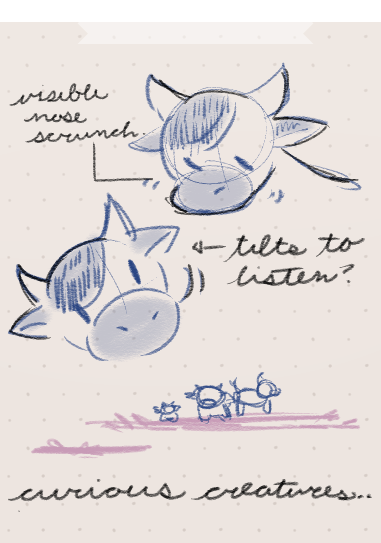 visible
nose
scrunch.
← tilts to
listen?
curious creatures..